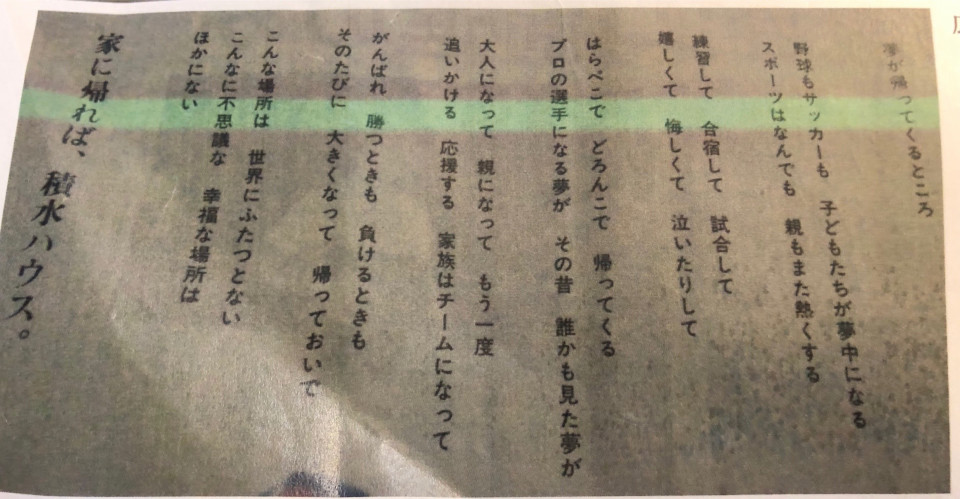 夢が帰ってくるところ
野球もサッカーも 子どもたちが夢中になる
スポーツはなんでも 親もまた熱くする
練習して 合宿して 試合して
嬉しくて 悔しくて 泣いたりして
はらぺこで どろんこで 帰ってくる
プロの選手になる夢が その昔 誰かも見た夢が
大人になって 親になって もう一度
追いかける 応援する 家族はチームになって
がんばれ 勝つときも 負けるときも
そのたびに 大きくなって 帰っておいで
こんな場所は 世界にふたつとない
こんなに不思議な 幸福な場所は
ほかにない
家に帰れば、積水ハウス。